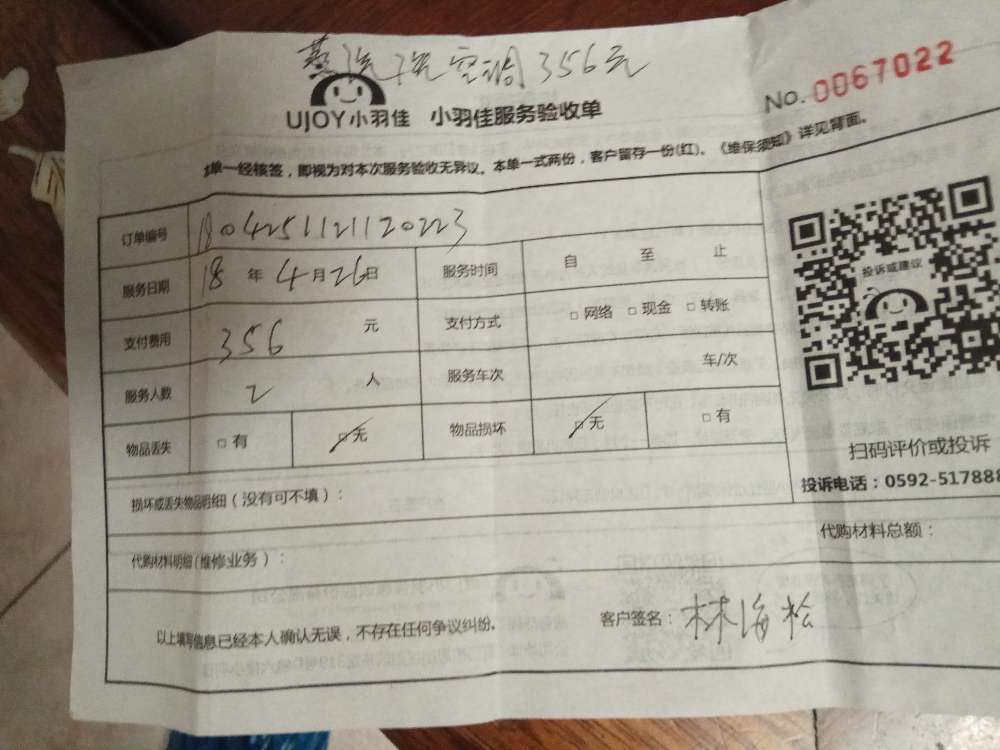 蒸汽洗空调356元
No. 0067022
UJOY小羽佳 小羽佳服务验收单
单一经核签，即视为对本次服务验收无异议。本单一式两份，客户留存一份(红)。《维保须知》详见背面。
订单编号 1804251121120223
服务日期 18年4月26日 服务时间 自 至 止
支付费用 356 元 支付方式 □网络 □现金 □转账
服务人数 2 人 服务车次 车/次
物品丢失 □有 □无 物品损坏 □无 □有
投诉或建议
扫码评价或投诉
投诉电话：0592-517888
损坏或丢失物品明细（没有可不填）：
代购材料明细(维修业务)：
代购材料总额：
以上填写信息已经本人确认无误，不存在任何争议纠纷。
客户签名：林海桧